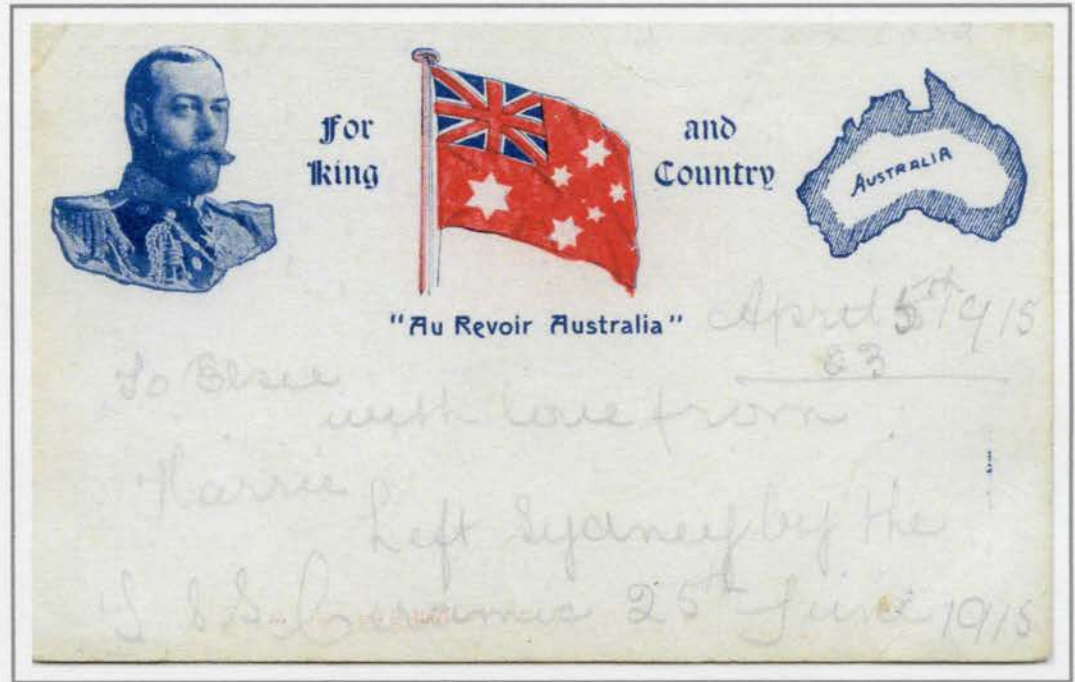 For King
and Country
AUSTRALIA
"Au Revoir Australia"
April 5th 1915
83
To Elsie
with love from
Harrie
Left Sydney by the
S.S. Ceramic 25th June 1915